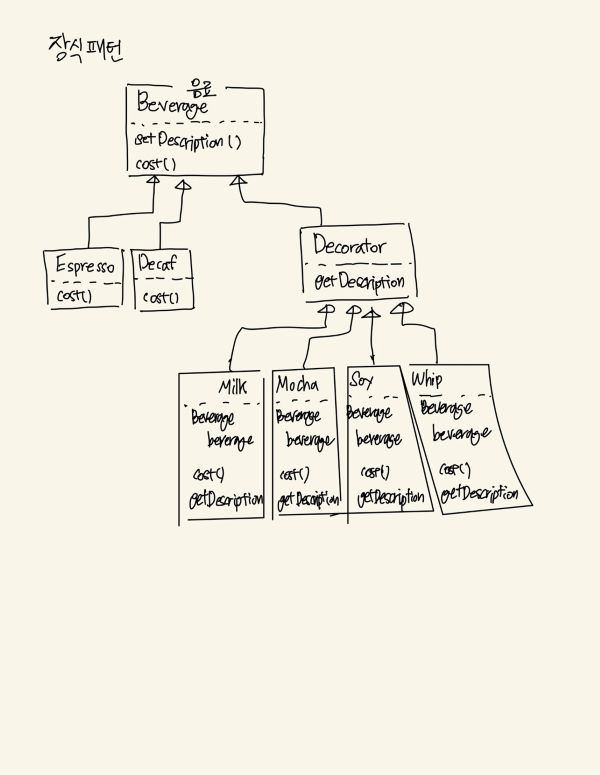 장식패턴
음료
Beverage
getDescription()
cost()
Espresso
cost()
Decaf
cost()
Decorator
getDescription
Milk
Beverage
beverage
cost()
getDescription
Mocha
Beverage
beverage
cost()
getDescription
Soy
Beverage
beverage
cost()
getDescription
Whip
Beverage
beverage
cost()
getDescription